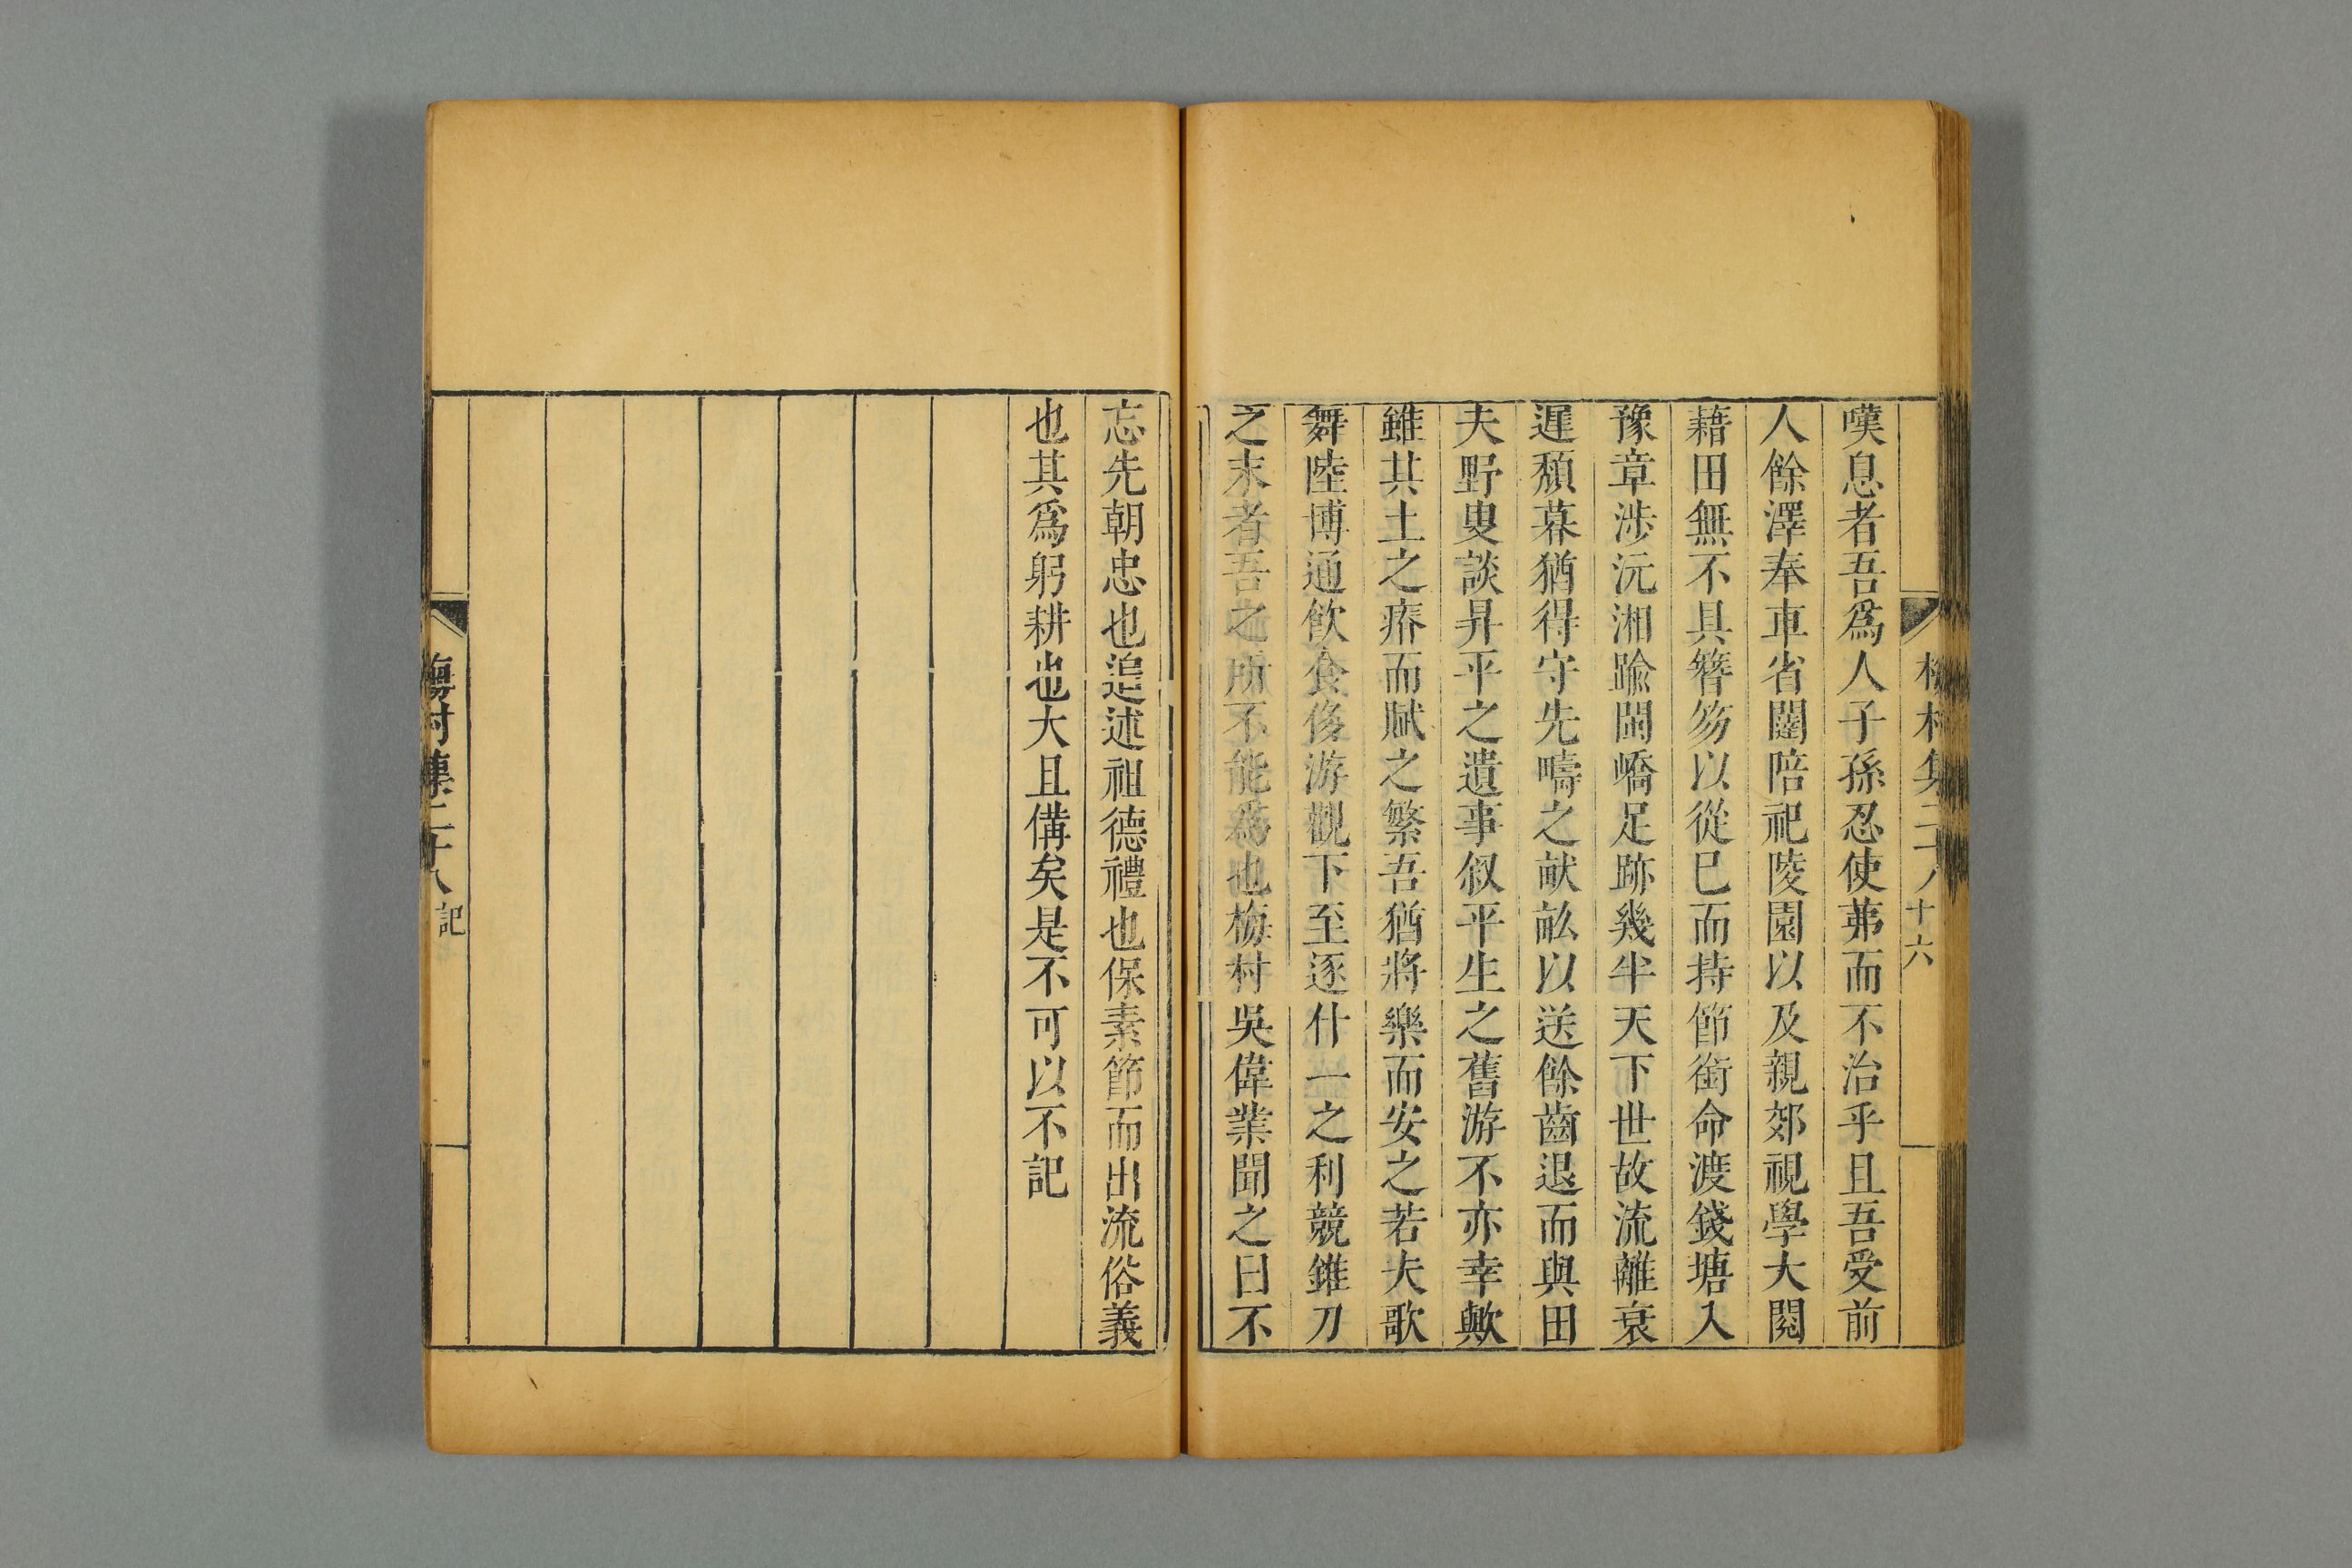 嘆息者吾為人子孫忍使茀而不治乎且吾受前
人餘澤奉車省闥陪祀陵園以及親郊視學大閱
藉田無不具簪笏以從巳而持節銜命渡錢塘入
豫章涉沅湘踰閩嶠足跡幾半天下世故流離衰
遲頹暮猶得守先疇之畎畝以送餘齒退而與田
夫野叟談昇平之遺事叙平生之舊游不亦幸歟
雖其土之瘠而賦之繁吾猶將樂而安之若夫歌
舞陸博通飲食侈游觀下至逐什一之利競錐刀
之末者吾之所不能為也梅村吳偉業聞之曰不
忘先朝忠也追述祖德禮也保素節而出流俗義
也其爲躬耕也大且備矣是不可以不記
梅村集二十八 十六
梅村集二十八 記